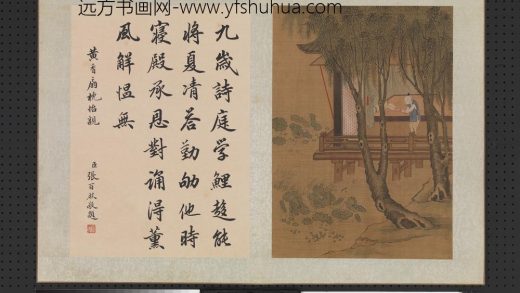 远方书画网-www.yfshuhua.com
九歲詩庭学鯉趍能
將夏凊荅勤劬他時
寝殿承恩對誦得薰
風解愠無
黄香扇枕怡親
臣張百熙敬題